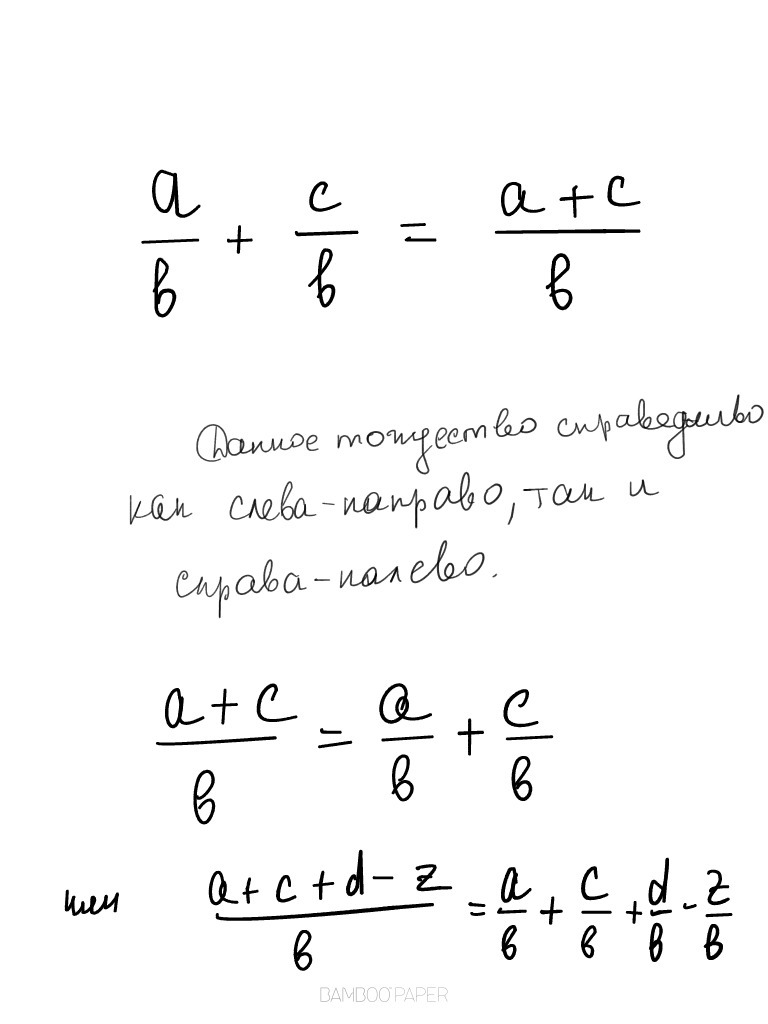 a/b + c/b = a+c/b
Данное тождество справедливо
как слева-направо, так и
справа-налево.
a+c/b = a/b + c/b
a+c+d-z/b = a/b + c/b + d/b - z/b
BAMBOO PAPER